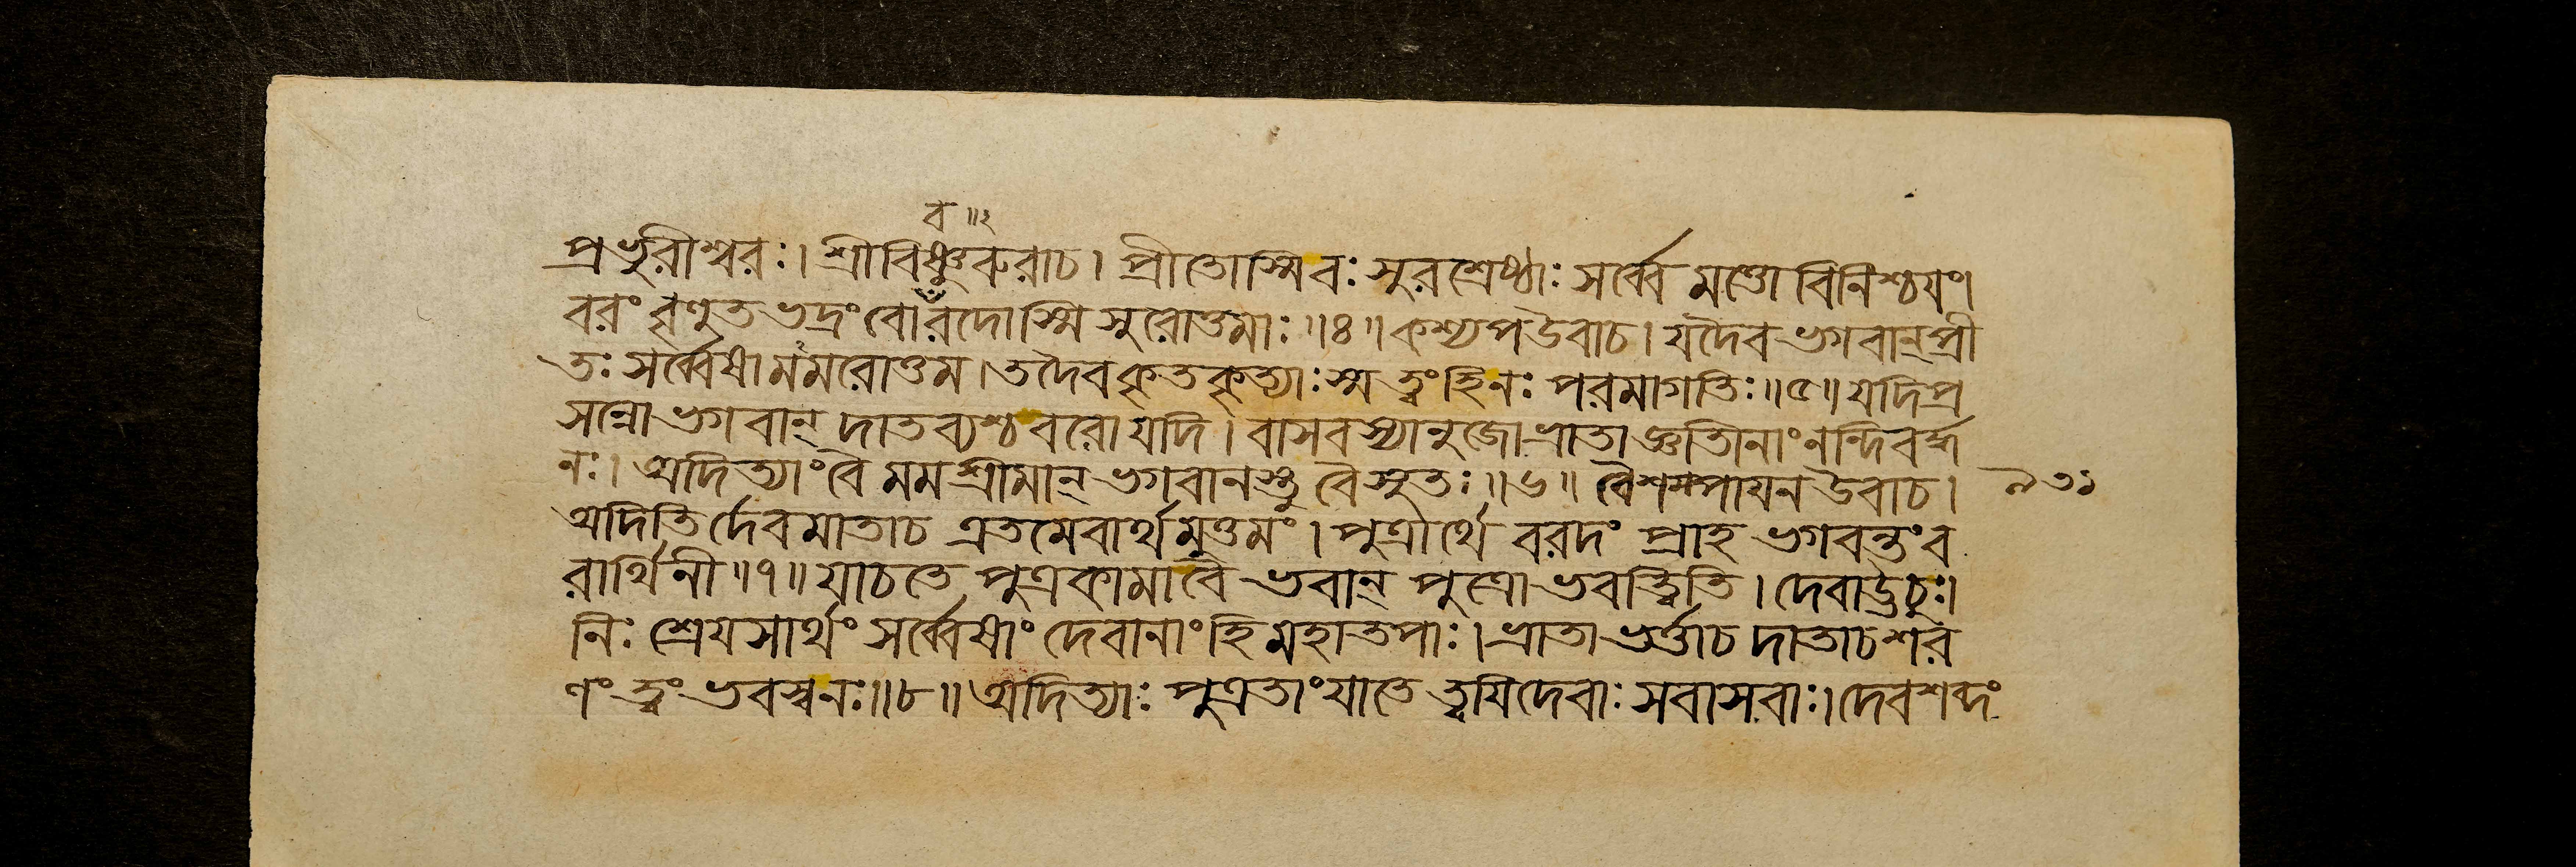 ব ॥২
প্রভুরীশ্বরঃ। শ্রীবিষ্ণুরুবাচ। প্রীতোস্মিবঃ সুরশ্রেষ্ঠাঃ সর্ব্বে মত্তো বিনিশ্চয়ং।
বরং বৃণুত ভদ্রং বো বরদোস্মি সুরোত্তমাঃ ॥৪॥ কশ্যপ উবাচ। যদৈব ভগবান্প্রী
তঃ সর্ব্বেষামমরোত্তম। তদৈব কৃতকৃত্যাঃ স্ম ত্বং হি নঃ পরমাগতিঃ ॥৫॥ যদি প্র
সন্নো ভগবান্ দাতব্যশ্চ বরো যদি। বাসবস্যানুজো ভ্রাতা জ্ঞাতীনাং নন্দিবর্দ্ধ
নঃ। অদিত্যাং বৈ মম শ্রীমান্ ভগবানস্তু বৈ সুতঃ ॥৬॥ বৈশম্পায়ন উবাচ।
অদিতির্দেবমাতাচ এতমেবার্থমুত্তমং। পুত্রার্থে বরদং প্রাহ ভগবন্তং ব
রার্থিনী ॥৭॥ যাচতে পুত্রকামা বৈ ভবান্ পুত্রো ভবত্বিতি। দেবা ঊচুঃ।
নিঃশ্রেয়সার্থং সর্ব্বেষাং দেবানাং হি মহাতপাঃ। ভ্রাতা ভর্ত্তাচ দাতাচ শর
ণং ত্বং ভবস্ব নঃ ॥৮॥ অদিত্যাঃ পুত্রতাং যাতে ত্বয়ি দেবাঃ সবাসবাঃ। দেবশব্দং